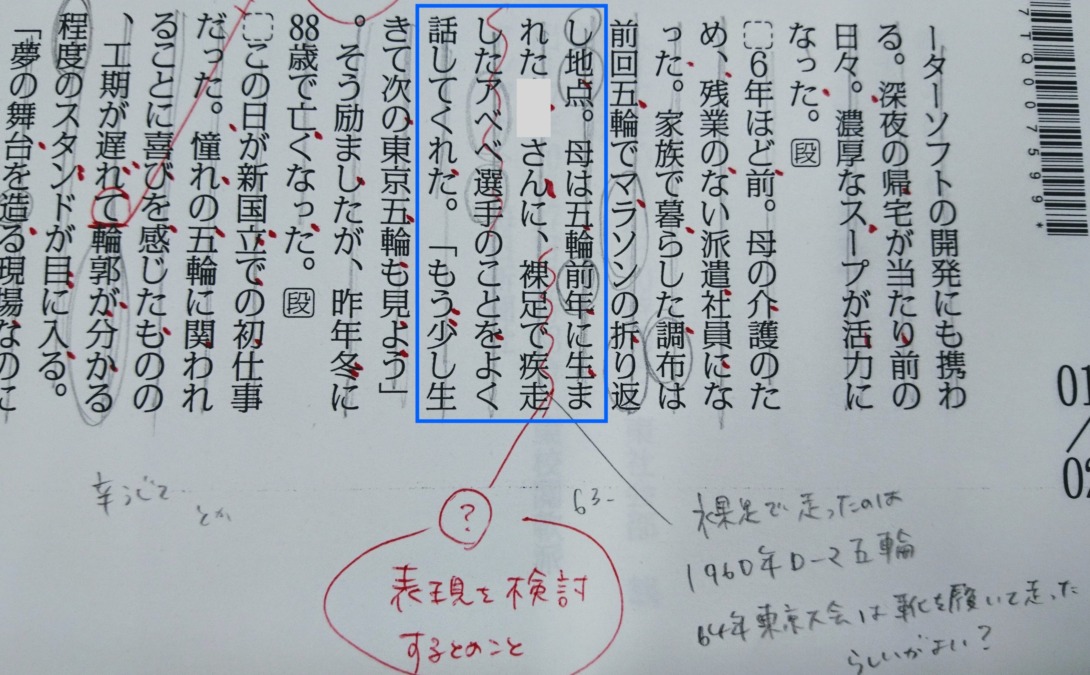 ーターソフトの開発にも携わ
る。深夜の帰宅が当たり前の
日々。濃厚なスープが活力に
なった。段
6年ほど前。母の介護のた
め、残業のない派遣社員にな
った。家族で暮らした調布は
前回五輪でマラソンの折り返
し地点。母は五輪前年に生ま
れた さんに、裸足で疾走
したアベベ選手のことをよく
話してくれた。「もう少し生
きて次の東京五輪も見よう」
。そう励ましたが、昨年冬に
88歳で亡くなった。段
この日が新国立での初仕事
だった。憧れの五輪に関われ
ることに喜びを感じたものの
、工期が遅れて輪郭が分かる
程度のスタンドが目に入る。
「夢の舞台を造る現場なのに
7TQ007599*
01/02
裸足で走ったのは
1960年ローマ五輪
64年東京大会は靴を履いて走った
らしいがよい?
63-
?
表現を検討
するとのこと
辛うじて
とか